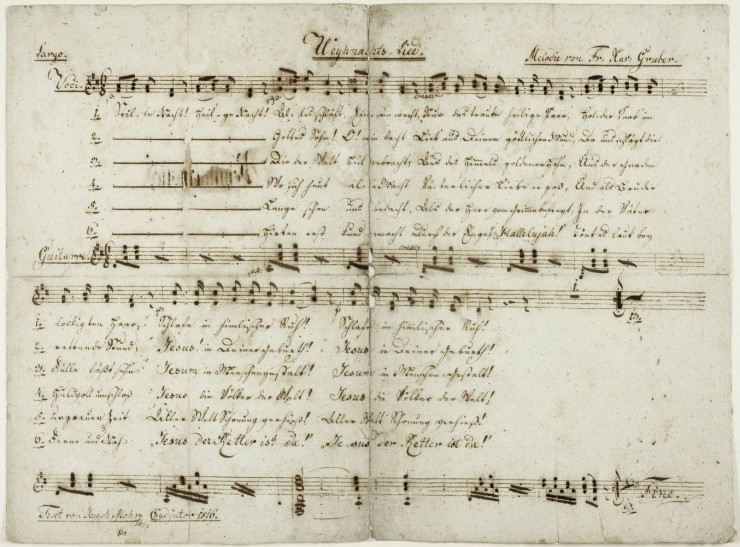 Weyhnachts-Lied.
Largo. Melodie von Fr. Xav. Gruber.
Voci.
1. Stil-le Nacht! Heil-ge Nacht! Alles schläft. Eynsam wacht, Nur das traute heilige Paar. Holder Knab im
2. Gottes Sohn! O! wie lacht Lieb aus Deinem göttlichen Mund, Da uns schlägt die
3. Die der Welt Heil gebracht, Aus des Himmels goldenen Höhn, Uns der Gnaden
4. Wo sich heut alle Macht Väterlicher Liebe ergoß, Und als Bruder
5. Lange schon uns bedacht, Als der Herr vom Grimme befreyt, In der Väter
6. Hirten erst kundgemacht Durch der Engel „Hallelujah!“ Tönt es laut bey
Guitarre.
1. lockigten Haar; Schlafe in himmlischer Ruh! Schlafe in himmlischer Ruh!
2. rettende Stund. Jesus! in Deiner Geburth! Jesus in Deiner Geburth!
3. Fülle läßt sehn: Jesum in Menschengestalt! Jesum in Menschengestalt!
4. Huldvoll umschloß Jesus die Völker der Welt! Jesus die Völker der Welt!
5 urgrauer Zeit Aller Welt Schonung verhieß! Aller Welt Schonung verhieß!
6. Ferne und Nah: „Jesus der Retter ist da!“ „Jesus der Retter ist da!“
Fine.
Text von Joseph Mohr Coadjutor 1816.